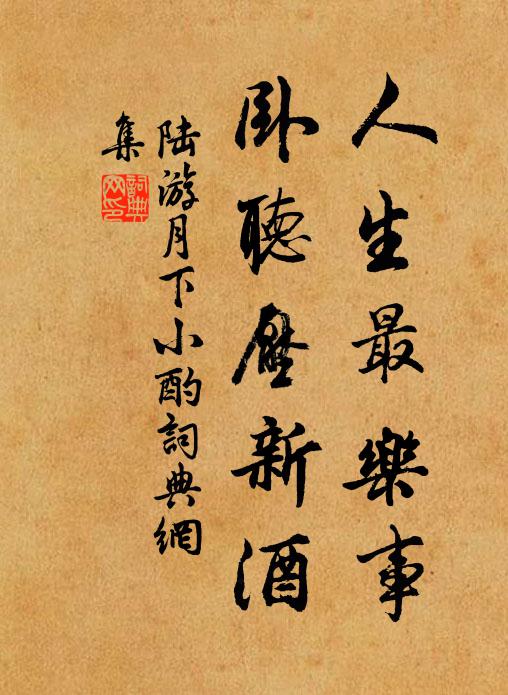 人生最樂事
卧聽壓新酒
陆游月下小酌詞典網
集
詞典网印